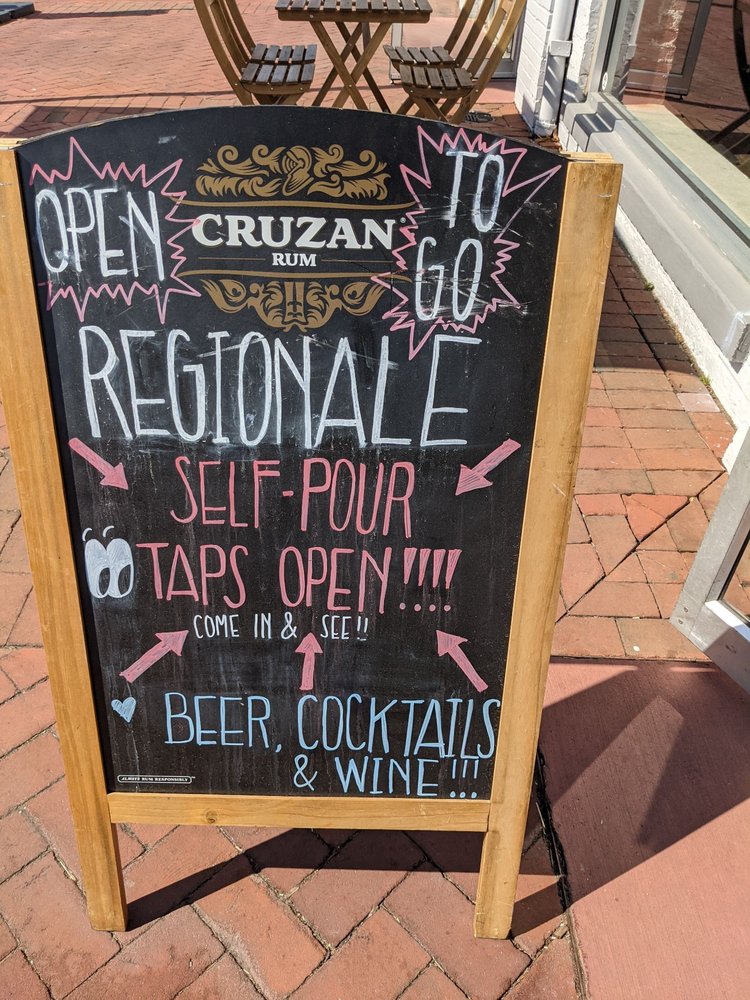 OPEN
TO
GO
CRUZAN®
RUM
REGIONALE
SELF-POUR
TAPS OPEN!!!!
COME IN & SEE!!
BEER, COCKTAILS
& WINE!!!
ALWAYS RUM RESPONSIBLY™